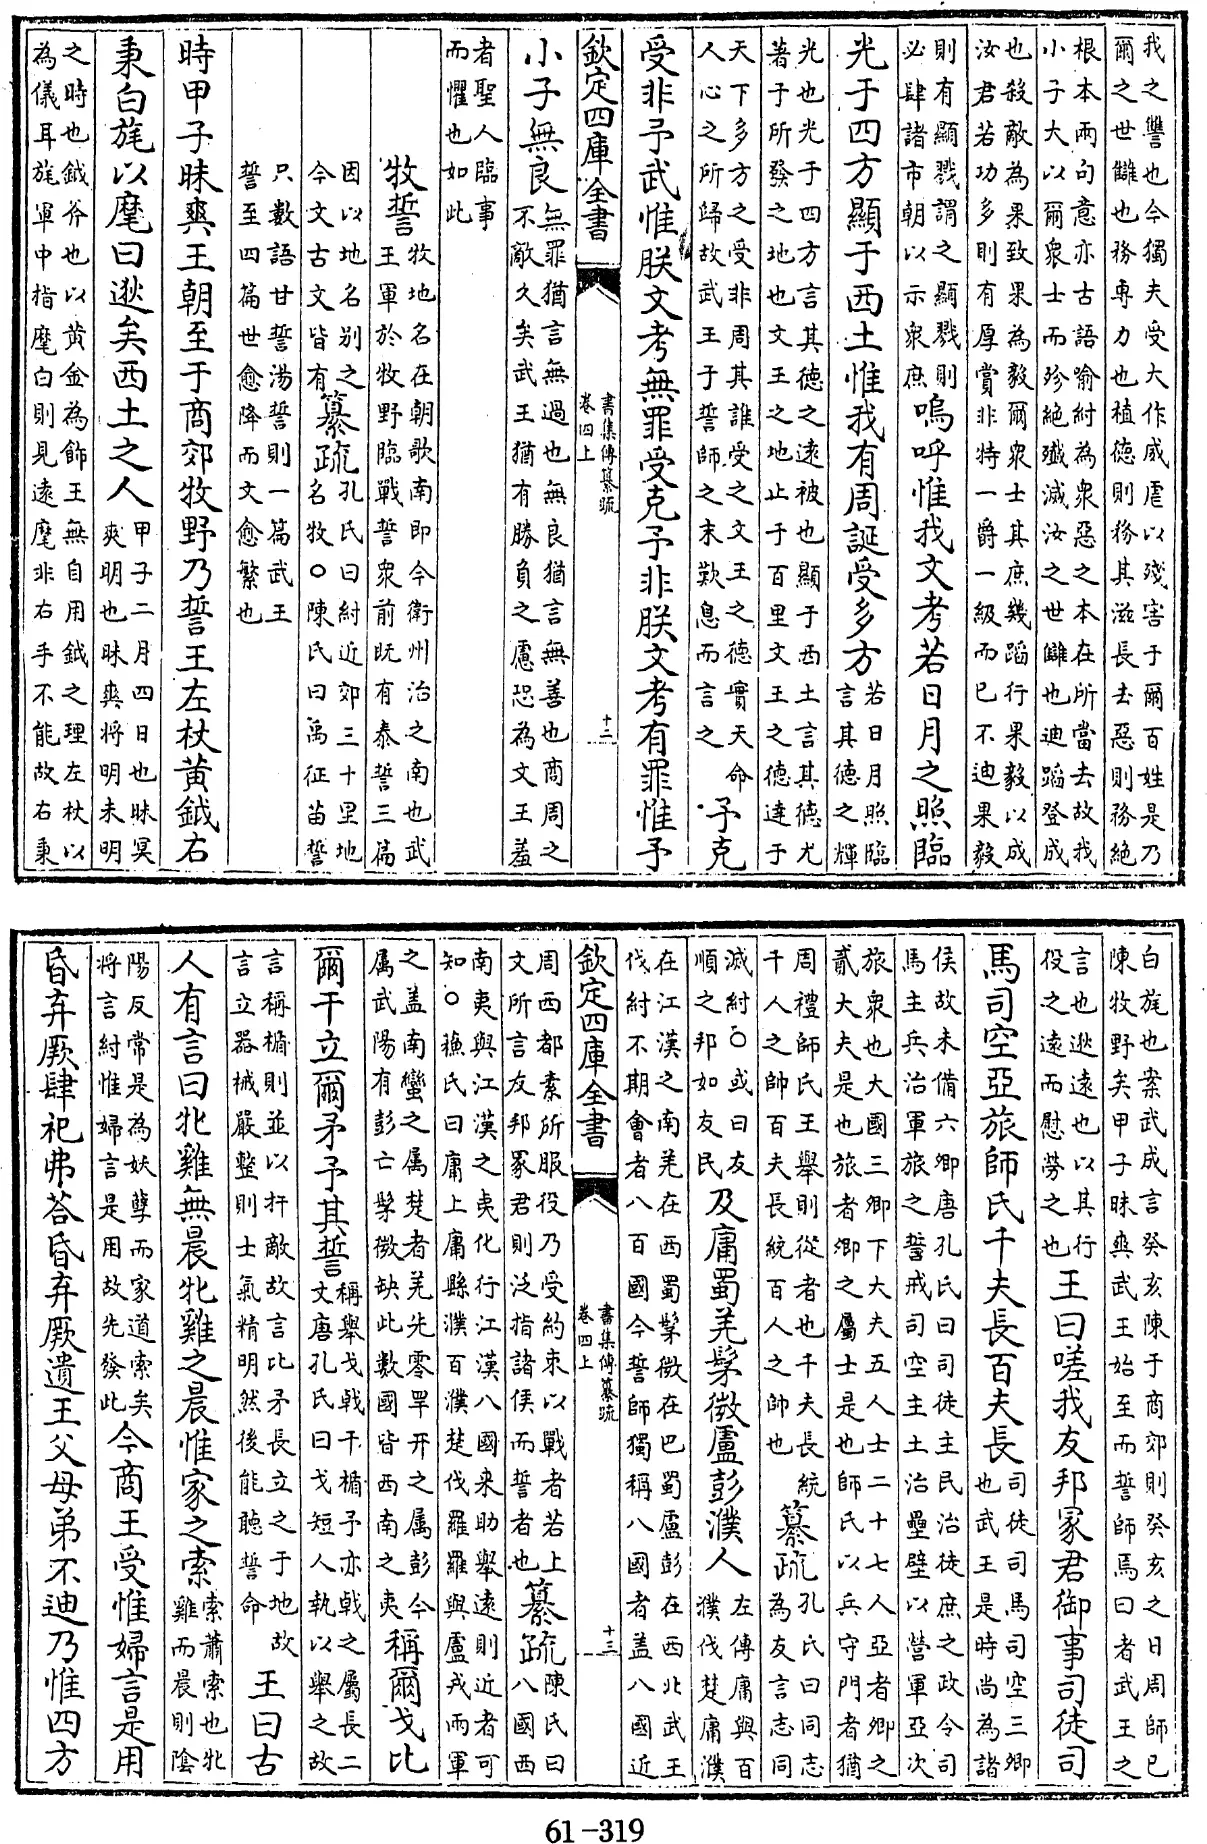 我之讐也今獨夫受大作威虐以殘害于爾百姓是乃
爾之世讎也務專力也植德則務其滋長去惡則務絶
根本兩句意亦古語喻紂為衆惡之本在所當去故我
小子大以爾衆士而殄絶殱滅汝之世讎也迪蹈登成
也殺敵為果致果為毅爾衆士其庶幾蹈行果毅以成
汝君若功多則有厚賞非特一爵一級而已不迪果毅
則有顯戮謂之顯戮則
必肆諸市朝以示衆庶
嗚呼惟我文考若日月之照臨
光于四方顯于西土惟我有周誕受多方
若日月照臨
言其德之輝
光也光于四方言其德之遠被也顯于西土言其德尤
著于所發之地也文王之地止于百里文王之德達于
天下多方之受非周其誰受之文王之德實天命
人心之所歸故武王于誓師之末歎息而言之
予克
受非予武惟朕文考無罪受克予非朕文考有罪惟予
欽定四庫全書
書集傳纂疏
卷四上
十二
小子無良
無罪猶言無過也無良猶言無善也商周之
不敵久矣武王猶有勝負之慮恐為文王羞
者聖人臨事
而懼也如此
牧誓
牧地名在朝歌南即今衛州治之南也武
王軍於牧野臨戰誓衆前既有泰誓三篇
因以地名别之
今文古文皆有
纂疏
孔氏曰紂近郊三十里地
名牧○陳氏曰禹征苗誓
只數語甘誓湯誓則一篇武王
誓至四篇世愈降而文愈繁也
時甲子昧爽王朝至于商郊牧野乃誓王左杖黄鉞右
秉白旄以麾曰逖矣西土之人
甲子二月四日也昧冥
爽明也昧爽將明未明
之時也鉞斧也以黄金為飾王無自用鉞之理左杖以
為儀耳旄軍中指麾白則見遠麾非右手不能故右秉
白旄也案武成言癸亥陳于商郊則癸亥之日周師已
陳牧野矣甲子昧爽武王始至而誓師焉曰者武王之
言也逖遠也以其行
役之遠而慰勞之也
王曰嗟我友邦冢君御事司徒司
馬司空亞旅師氏千夫長百夫長
司徒司馬司空三卿
也武王是時尚為諸
侯故未備六卿唐孔氏曰司徒主民治徒庶之政令司
馬主兵治軍旅之誓戒司空主土治壘壁以營軍亞次
旅衆也大國三卿下大夫五人士二十七人亞者卿之
貳大夫是也旅者卿之屬士是也師氏以兵守門者猶
周禮師氏王舉則從者也千夫長統
千人之帥百夫長統百人之帥也
纂疏
孔氏曰同志
為友言志同
滅紂○或曰友
順之邦如友民
及庸蜀羌髳微盧彭濮人
左傳庸與百
濮伐楚庸濮
在江漢之南羌在西蜀髳微在巴蜀盧彭在西北武王
伐紂不期會者八百國今誓師獨稱八國者盖八國近
欽定四庫全書
書集傳纂疏
卷四上
十三
周西都素所服役乃受約束以戰者若上
文所言友邦冢君則泛指諸侯而誓者也
纂疏
陳氏曰
八國西
南夷與江漢之夷化行江漢八國来助舉遠則近者可
知○蘓氏曰庸上庸縣濮百濮楚伐羅羅與盧戎兩軍
之盖南蠻之属楚者羌先零罕开之属彭今
属武陽有彭亡髳微缺此數國皆西南之夷
稱爾戈比
爾干立爾矛予其誓
稱舉戈戟干楯矛亦戟之屬長二
丈唐孔氏曰戈短人執以舉之故
言稱楯則並以扞敵故言比矛長立之于地故
言立器械嚴整則士氣精明然後能聽誓命
王曰古
人有言曰牝雞無晨牝雞之晨惟家之索
索蕭索也牝
雞而晨則陰
陽反常是為妖孽而家道索矣
將言紂惟婦言是用故先發此
今商王受惟婦言是用
昏弃厥肆祀弗荅昏弃厥遺王父母弟不迪乃惟四方
61-319